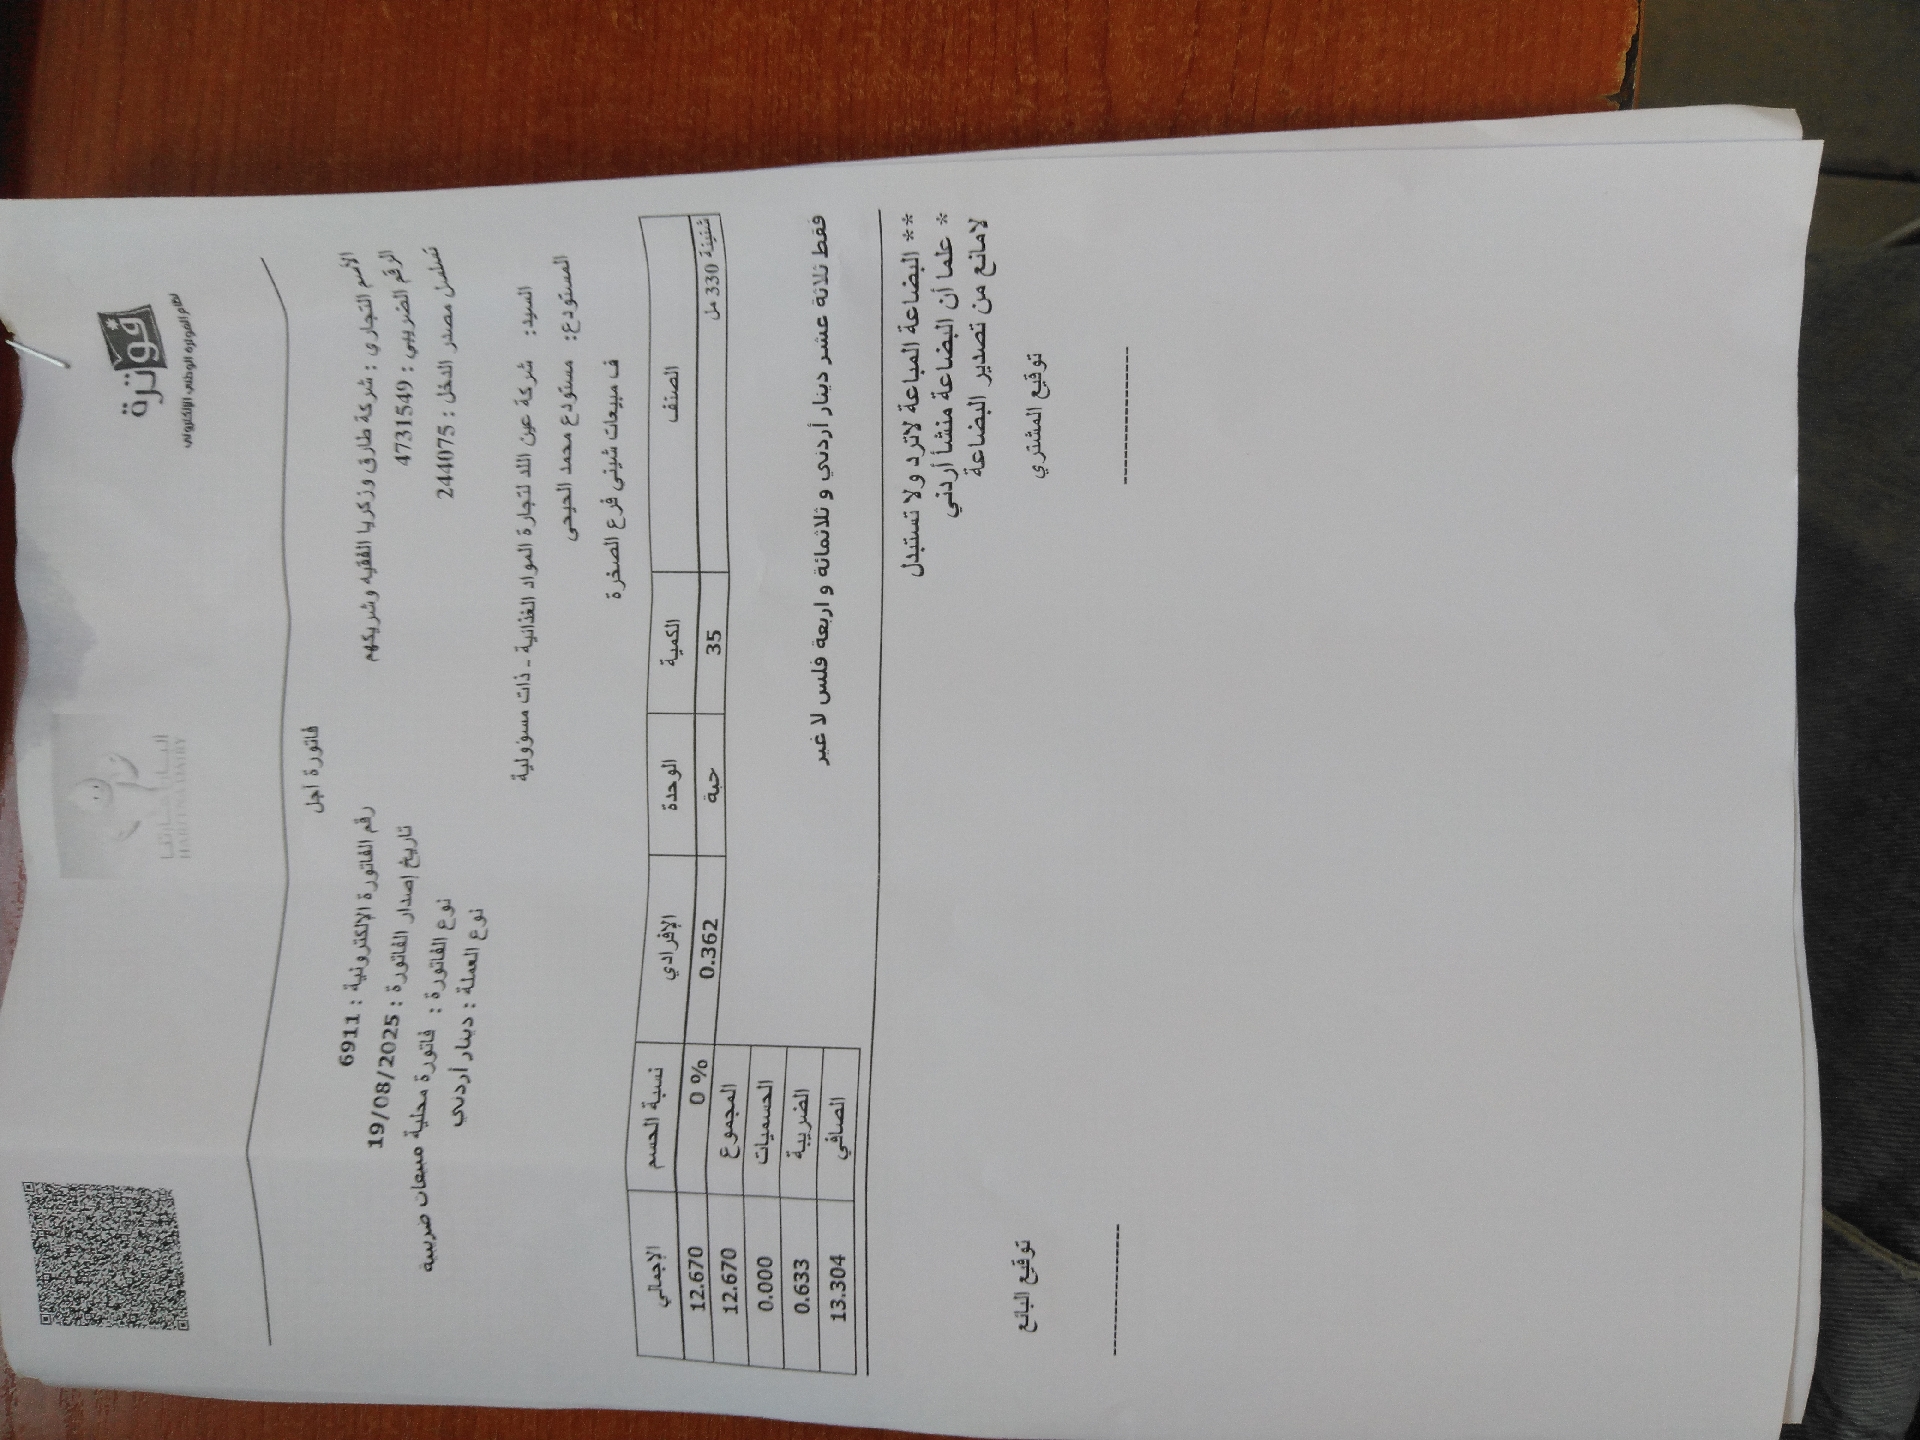 فوترة
نظام الفوترة الوطني الإلكتروني
HAMOUDA DAIRY
فاتورة اجل
الأسم التجاري : شركة طارق وزكريا الفقيه وشريكهم
الرقم الضريبي : 4731549
تسلسل مصدر الدخل : 244075
رقم الفاتورة الإلكترونية : 6911
تاريخ إصدار الفاتورة : 19/08/2025
نوع الفاتورة : فاتورة محلية مبيعات ضريبية
نوع العملة : دينار أردني
السيد: شركة عين اللد لتجارة المواد الغذائية - ذات مسؤولية
المستودع: مستودع محمد الحيحي
ف مبيعات شيني فرع الصخرة
الصنف الكمية الوحدة الإفرادي نسبة الحسم الاجمالي
شنينة 330 مل 35 حبة 0.362 0 % 12.670
المجموع 12.670
الحسميات 0.000
الضريبة 0.633
الصافي 13.304
فقط ثلاثة عشر دينار أردني و ثلاثمائة و اربعة فلس لا غير
** البضاعة المباعة لاترد ولا تستبدل
* علما أن البضاعة منشأ أردني
لامانع من تصدير البضاعة
توقيع المشتري توقيع البائع